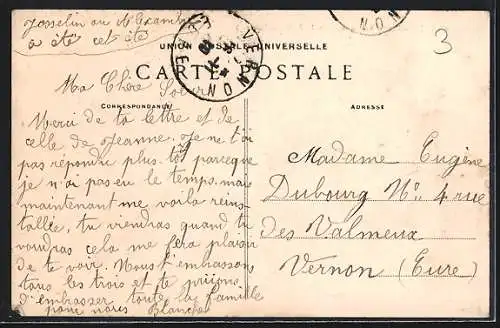 Josselin ou
a été cet été
VERNON
3
UNION POSTALE UNIVERSELLE
CARTE POSTALE
CORRESPONDANCE
ADRESSE
Ma Chère Soeur
Merci de ta lettre et de
celle de Jeanne. Je ne t'ai
pas répondu plus tôt parceque
je n'ai pas eu le temps, mais
maintenant me voila reins-
tallée, tu viendras quand tu
voudras cela me fera plaisir
de te voir. Nous t'embrassons
tous les trois et te prions
d'embrasser toute la famille
pour nous Blanche
Madame Eugène
Dubourg No 4 rue
des Valmeux
Vernon (Eure)